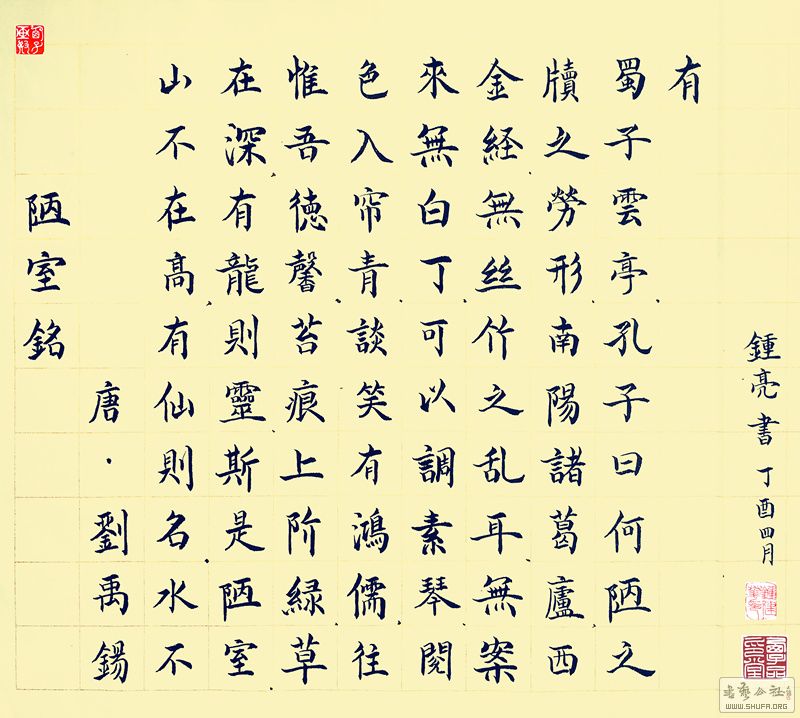 陋室銘
唐·劉禹鍚
山不在髙有仙則名水不
在深有龍則靈斯是陋室
惟吾徳馨苔痕上阶緑草
色入帘青談笑有鴻儒往
來無白丁可以調素琴閱
金経無丝竹之乱耳無案
牘之勞形南陽諸葛廬西
蜀子雲亭孔子曰何陋之
有
鍾亮書 丁酉四月
书艺公社
WWW.SHUFA.ORG